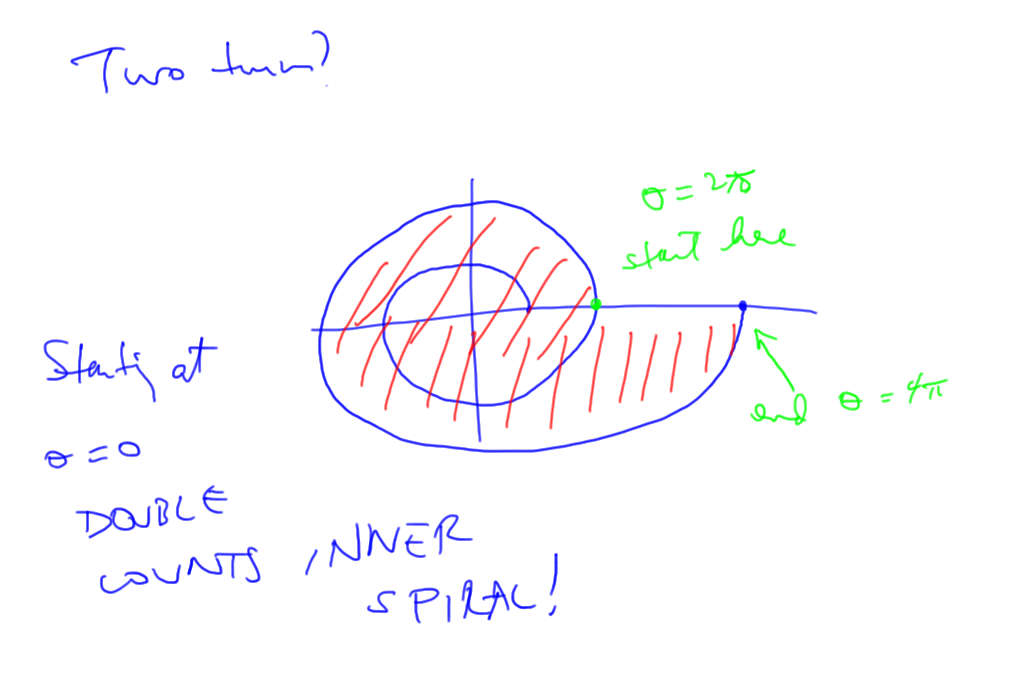 Two turn?
θ = 2π
start here
Starting at
θ = 0
end θ = 4π
DOUBLE
COUNTS INNER
SPIRAL!